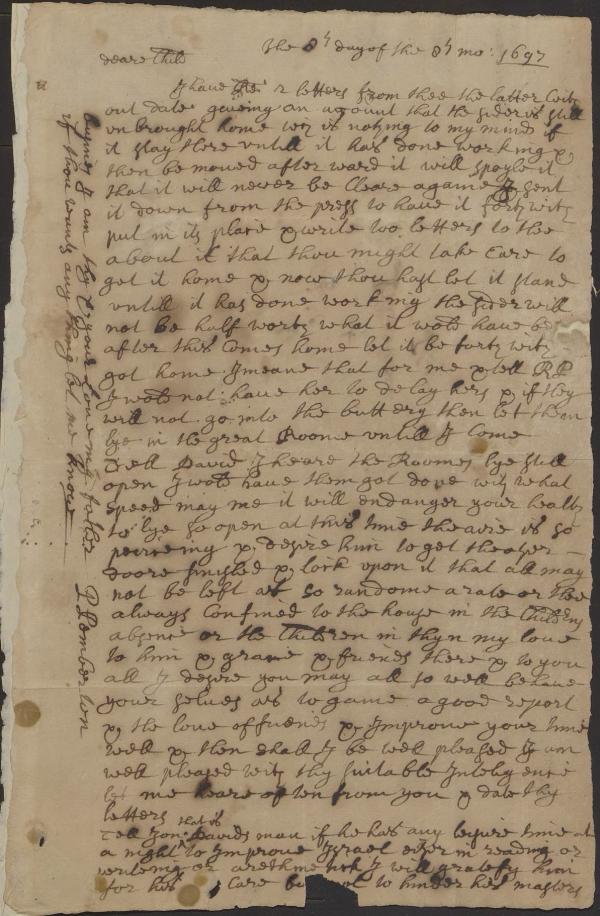 The 8th day of the 8th mo: 1697
deare Child
I have thee 2 letters from thee the latter with
out date giveing an account that the sider is still
unbrought home wch is nothing to my mind if
it stay there untill it has done working &
then be moved after ward it will spoyle it
that it will never be Cleare againe I sent
it down from the press to have it forthwith
put in its place & write two letters to thee
about it that thou might take Care to
get it home & now thou hast let it stand
untill it has done working the sider will
not be half worth what it wold have be
after this Comes home let it be forthwith
got home I meane that for me & tell RP
I wold not have her to delay hers & if they
will not go into the buttery then let them
lye in the great Roome untill I Come
Tell David I heare the Roomes lye still
open I wold have them got done with what
speed may me it will endanger your health
to lye so open at this time the aire is so
peirceing & desire him to get the
doore finished & lock upon it that all may
not be left at so randome a rate or thee
always Confined to the house in the Childrens
absence or the Children in thyn my love
to him & & friends there & to you
all I desire you may all so well behave
your selves as to gaine a good report
& the love of friends & Improve your time
well & then shall I be well pleased I am
well pleased with thy suitable Inteligence
let me heare often from you & date thy
letters
Tell Jon: that is Davids man if he has any leisure time at
a night to Improve Israel either in reading or
writeing or arethmetick I will gratefy him
for his Care but not to hinder his masters
busines I am thy & your loveing father P Pemberton
if thou wants any thing let me know